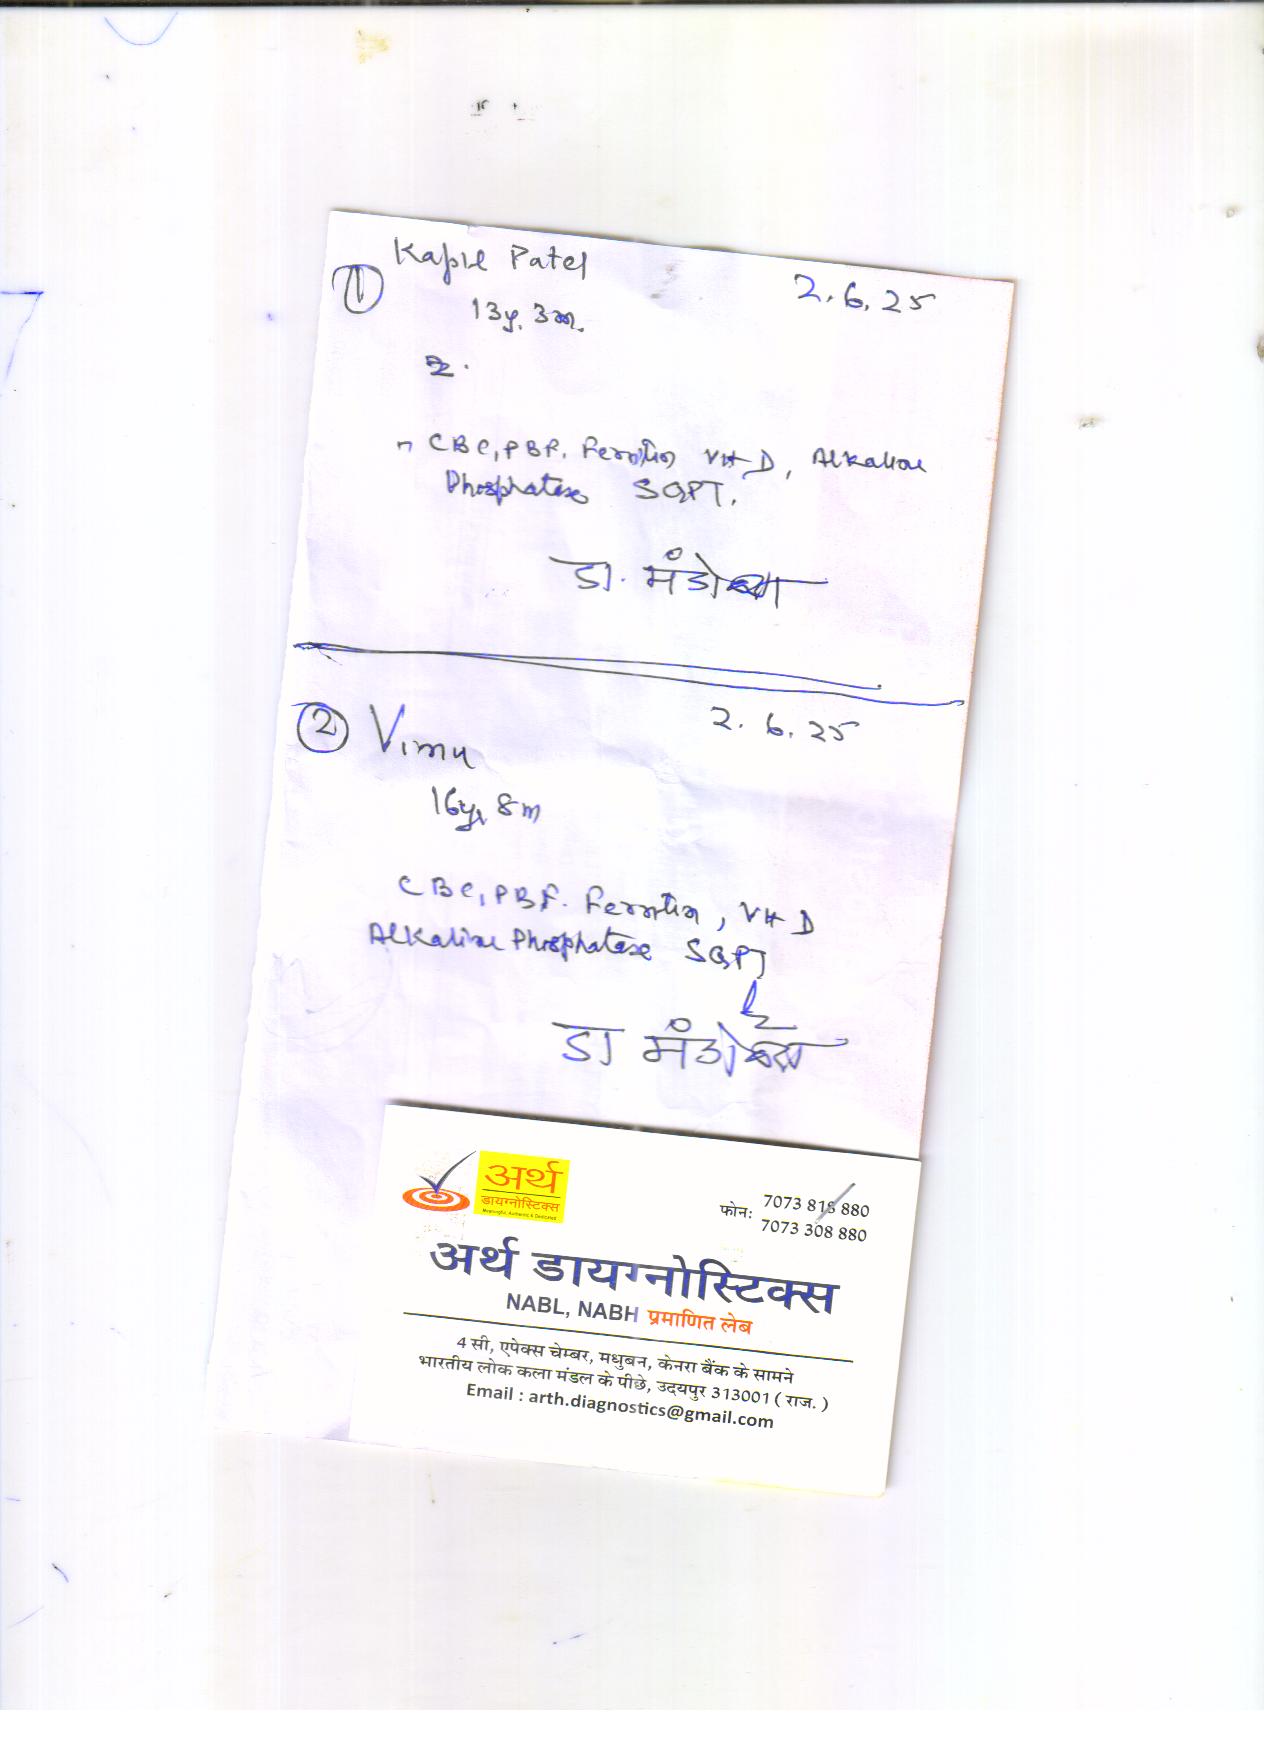 ① Kapil Patel
2.6.25
13y, 3m.
CBC, PBF. Ferritin Vit D, Alkaline
Phosphatase SGPT.
डा.
② Vimu
2.6.25
16y, 8m
CBC, PBF. Ferritin, Vit D
Alkaline Phosphatase SGPT
डा
अर्थ
डायग्नोस्टिक्स
Meaningful, Authentic & Dedicated
फोन: 7073 818 880
7073 308 880
अर्थ डायग्नोस्टिक्स
NABL, NABH प्रमाणित लेब
4 सी, एपेक्स चेम्बर, मधुबन, केनरा बैंक के सामने
भारतीय लोक कला मंडल के पीछे, उदयपुर 313001 ( राज. )
Email : arth.diagnostics@gmail.com